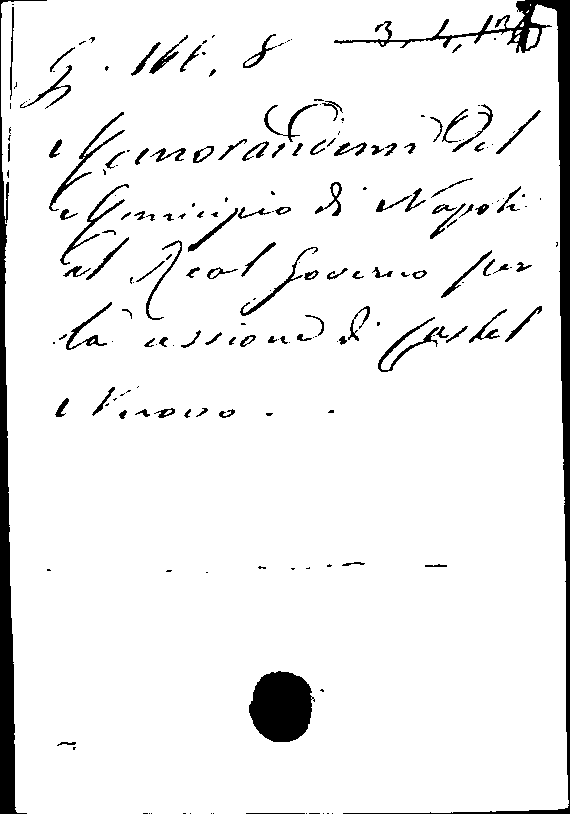 G. 166, 8
Memorandum del
Municipio di Napoli
al Real Governo per
la cessione di Castel
Nuovo.